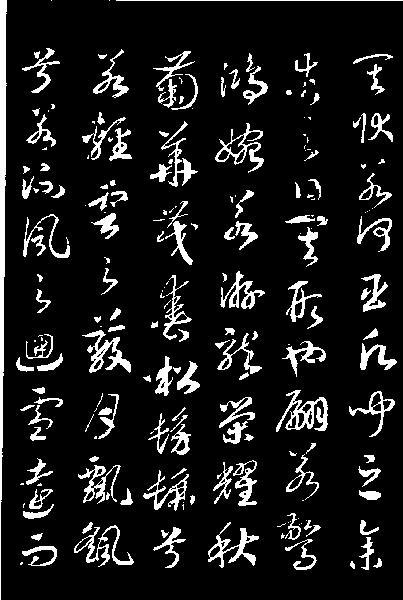 其狀若何臣願聞之余
告之曰其形也翩若驚
鴻婉若游龍榮耀秋
菊華茂春松髣髴兮
若輕雲之蔽月飄颻
兮若流風之迴雪遠而